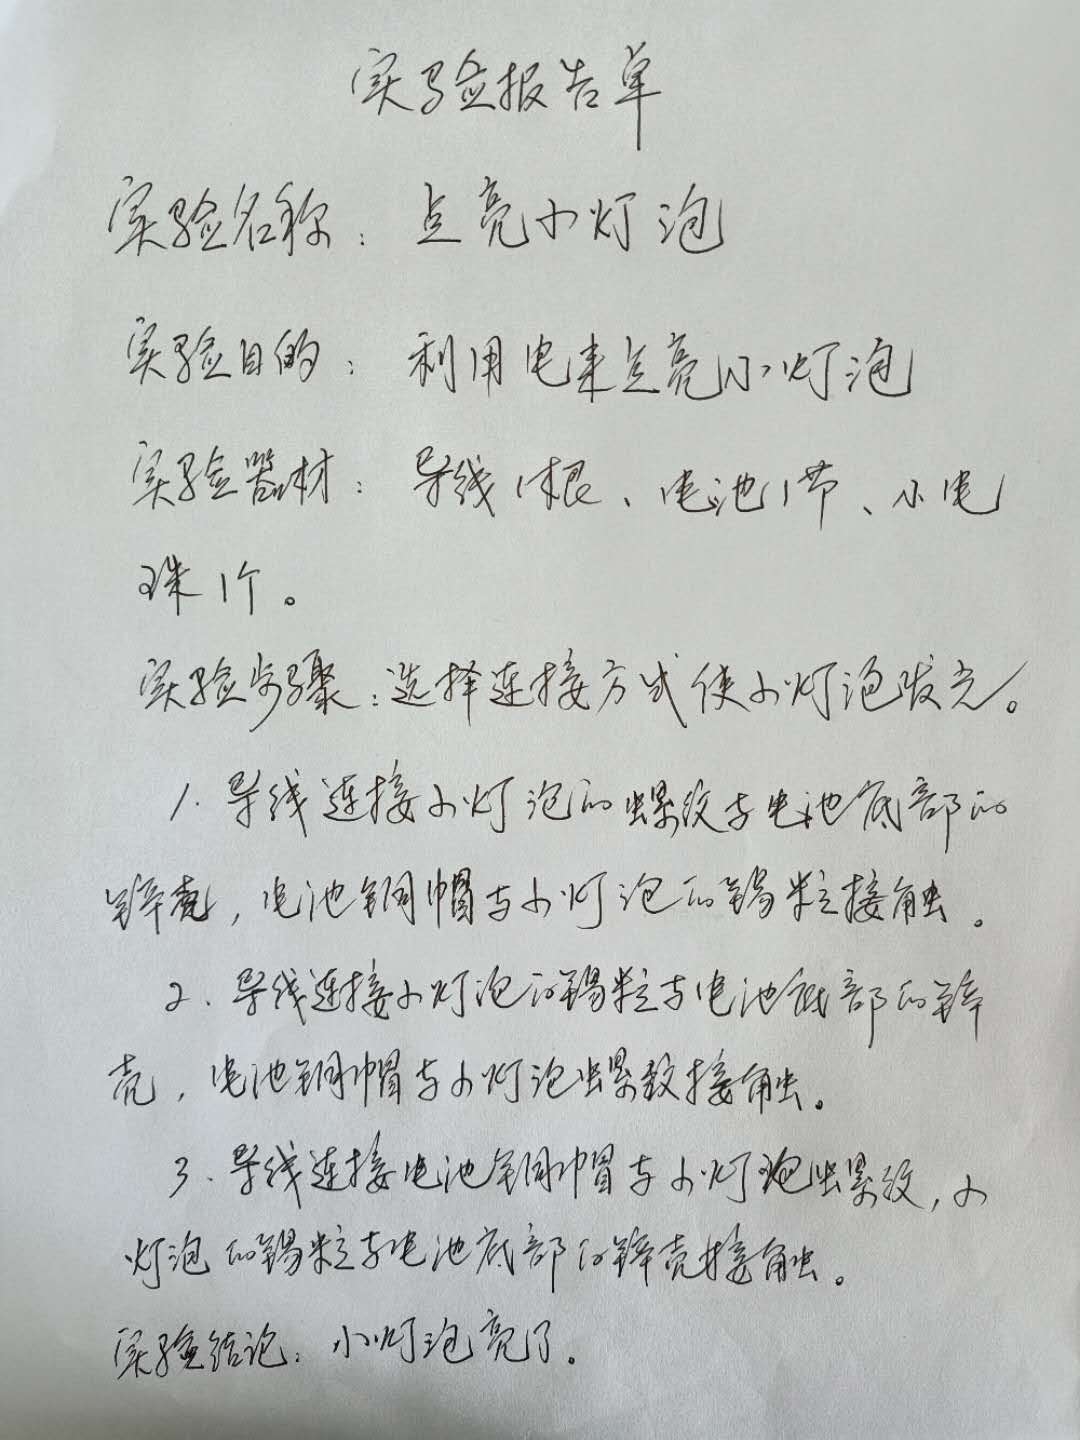 实验报告单
实验名称：点亮小灯泡
实验目的：利用电来点亮小灯泡
实验器材：导线1根、电池1节、小电
珠1个。
实验步骤：选择连接方式使小灯泡发光。
1.导线连接小灯泡的螺纹与电池底部的
锌壳，电池铜帽与小灯泡的锡粒接触。
2.导线连接小灯泡的锡粒与电池底部的锌
壳，电池铜帽与小灯泡螺纹接触。
3.导线连接电池铜帽与小灯泡螺纹，小
灯泡的锡粒与电池底部的锌壳接触。
实验结论：小灯泡亮了。